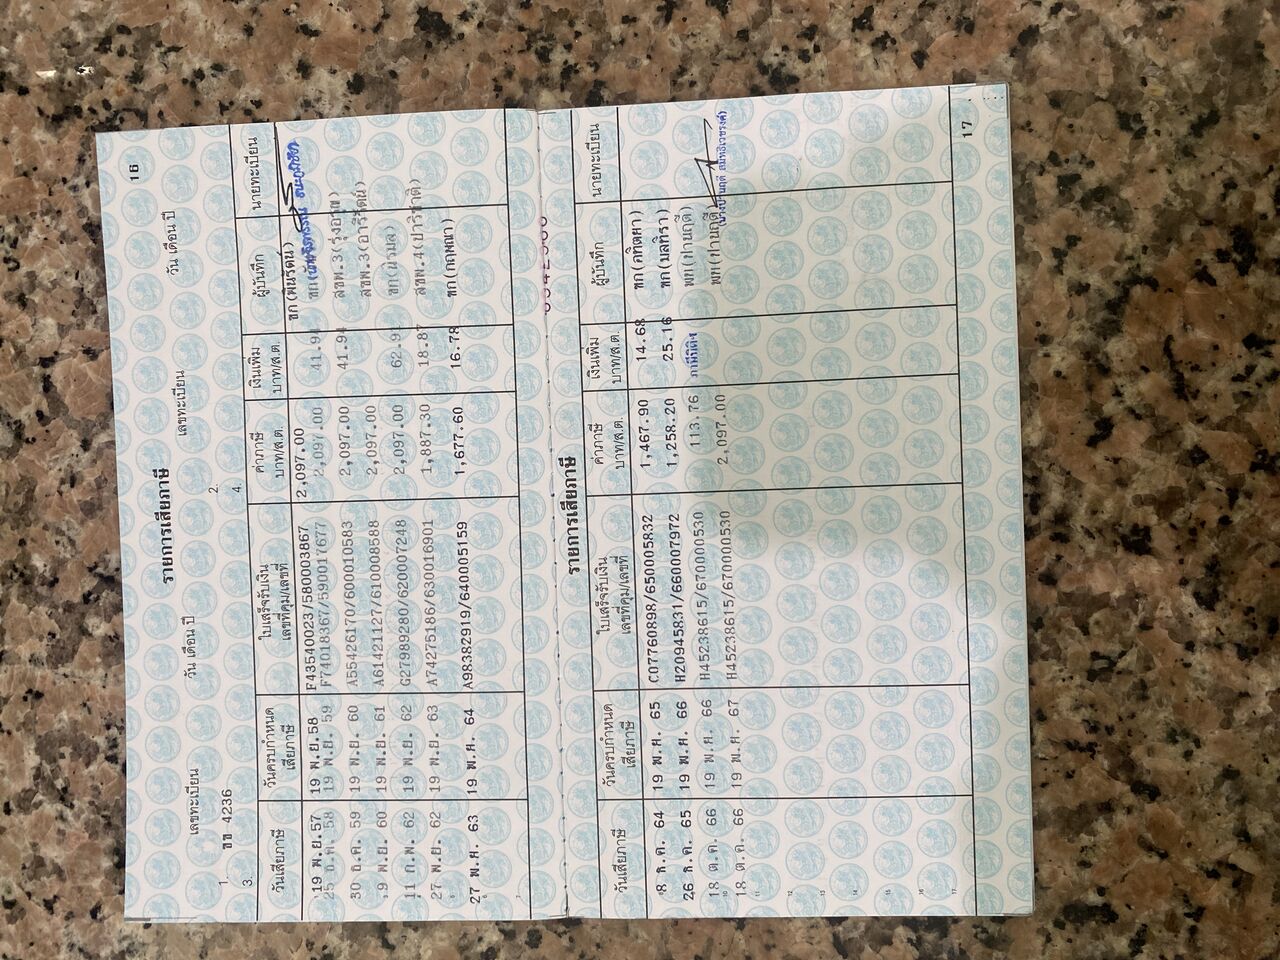 16
รายการเสียภาษี
เลขทะเบียน วัน เดือน ปี เลขทะเบียน วัน เดือน ปี
1. ขข 4236 2.
3. 4.
วันเสียภาษี วันครบกำหนดเสียภาษี ใบเสร็จรับเงิน เลขที่คุม/เลขที่ ค่าภาษี บาท/ส.ต. เงินเพิ่ม บาท/ส.ต. ผู้บันทึก นายทะเบียน
19 พ.ย.57 19 พ.ย.58 F43540023/580003867 2,097.00 ขก(พินรัตน์)
25 ธ.ค. 58 19 พ.ย. 59 F74018367/590017677 2,097.00 41.94
30 ธ.ค. 59 19 พ.ย. 60 A55426170/600010583 2,097.00 41.94 สขพ.3(รุ่งอาพ)
9 พ.ย. 60 19 พ.ย. 61 A61421127/610008588 2,097.00 สขพ.3(อารีรัตน์)
11 ก.พ. 62 19 พ.ย. 62 G27989280/620007248 2,097.00 62.91 ขก(นรมล)
27 พ.ย. 62 19 พ.ย. 63 A74275186/630016901 1,887.30 18.87 สขพ.4(ปาริชาติ)
27 พ.ย. 63 19 พ.ย. 64 A98382919/640005159 1,677.60 16.78 ขก(กฤษณา)
รายการเสียภาษี
วันเสียภาษี วันครบกำหนดเสียภาษี ใบเสร็จรับเงิน เลขที่คุม/เลขที่ ค่าภาษี บาท/ส.ต. เงินเพิ่ม บาท/ส.ต. ผู้บันทึก นายทะเบียน
8 ธ.ค. 64 19 พ.ย. 65 C07760898/650005832 1,467.90 14.68
26 ธ.ค. 65 19 พ.ย. 66 H20945831/660007972 1,258.20 25.16
18 ต.ค. 66 19 พ.ย. 66 H45238615/670000530 113.76
18 ต.ค. 66 19 พ.ย. 67 H45238615/670000530 2,097.00
17